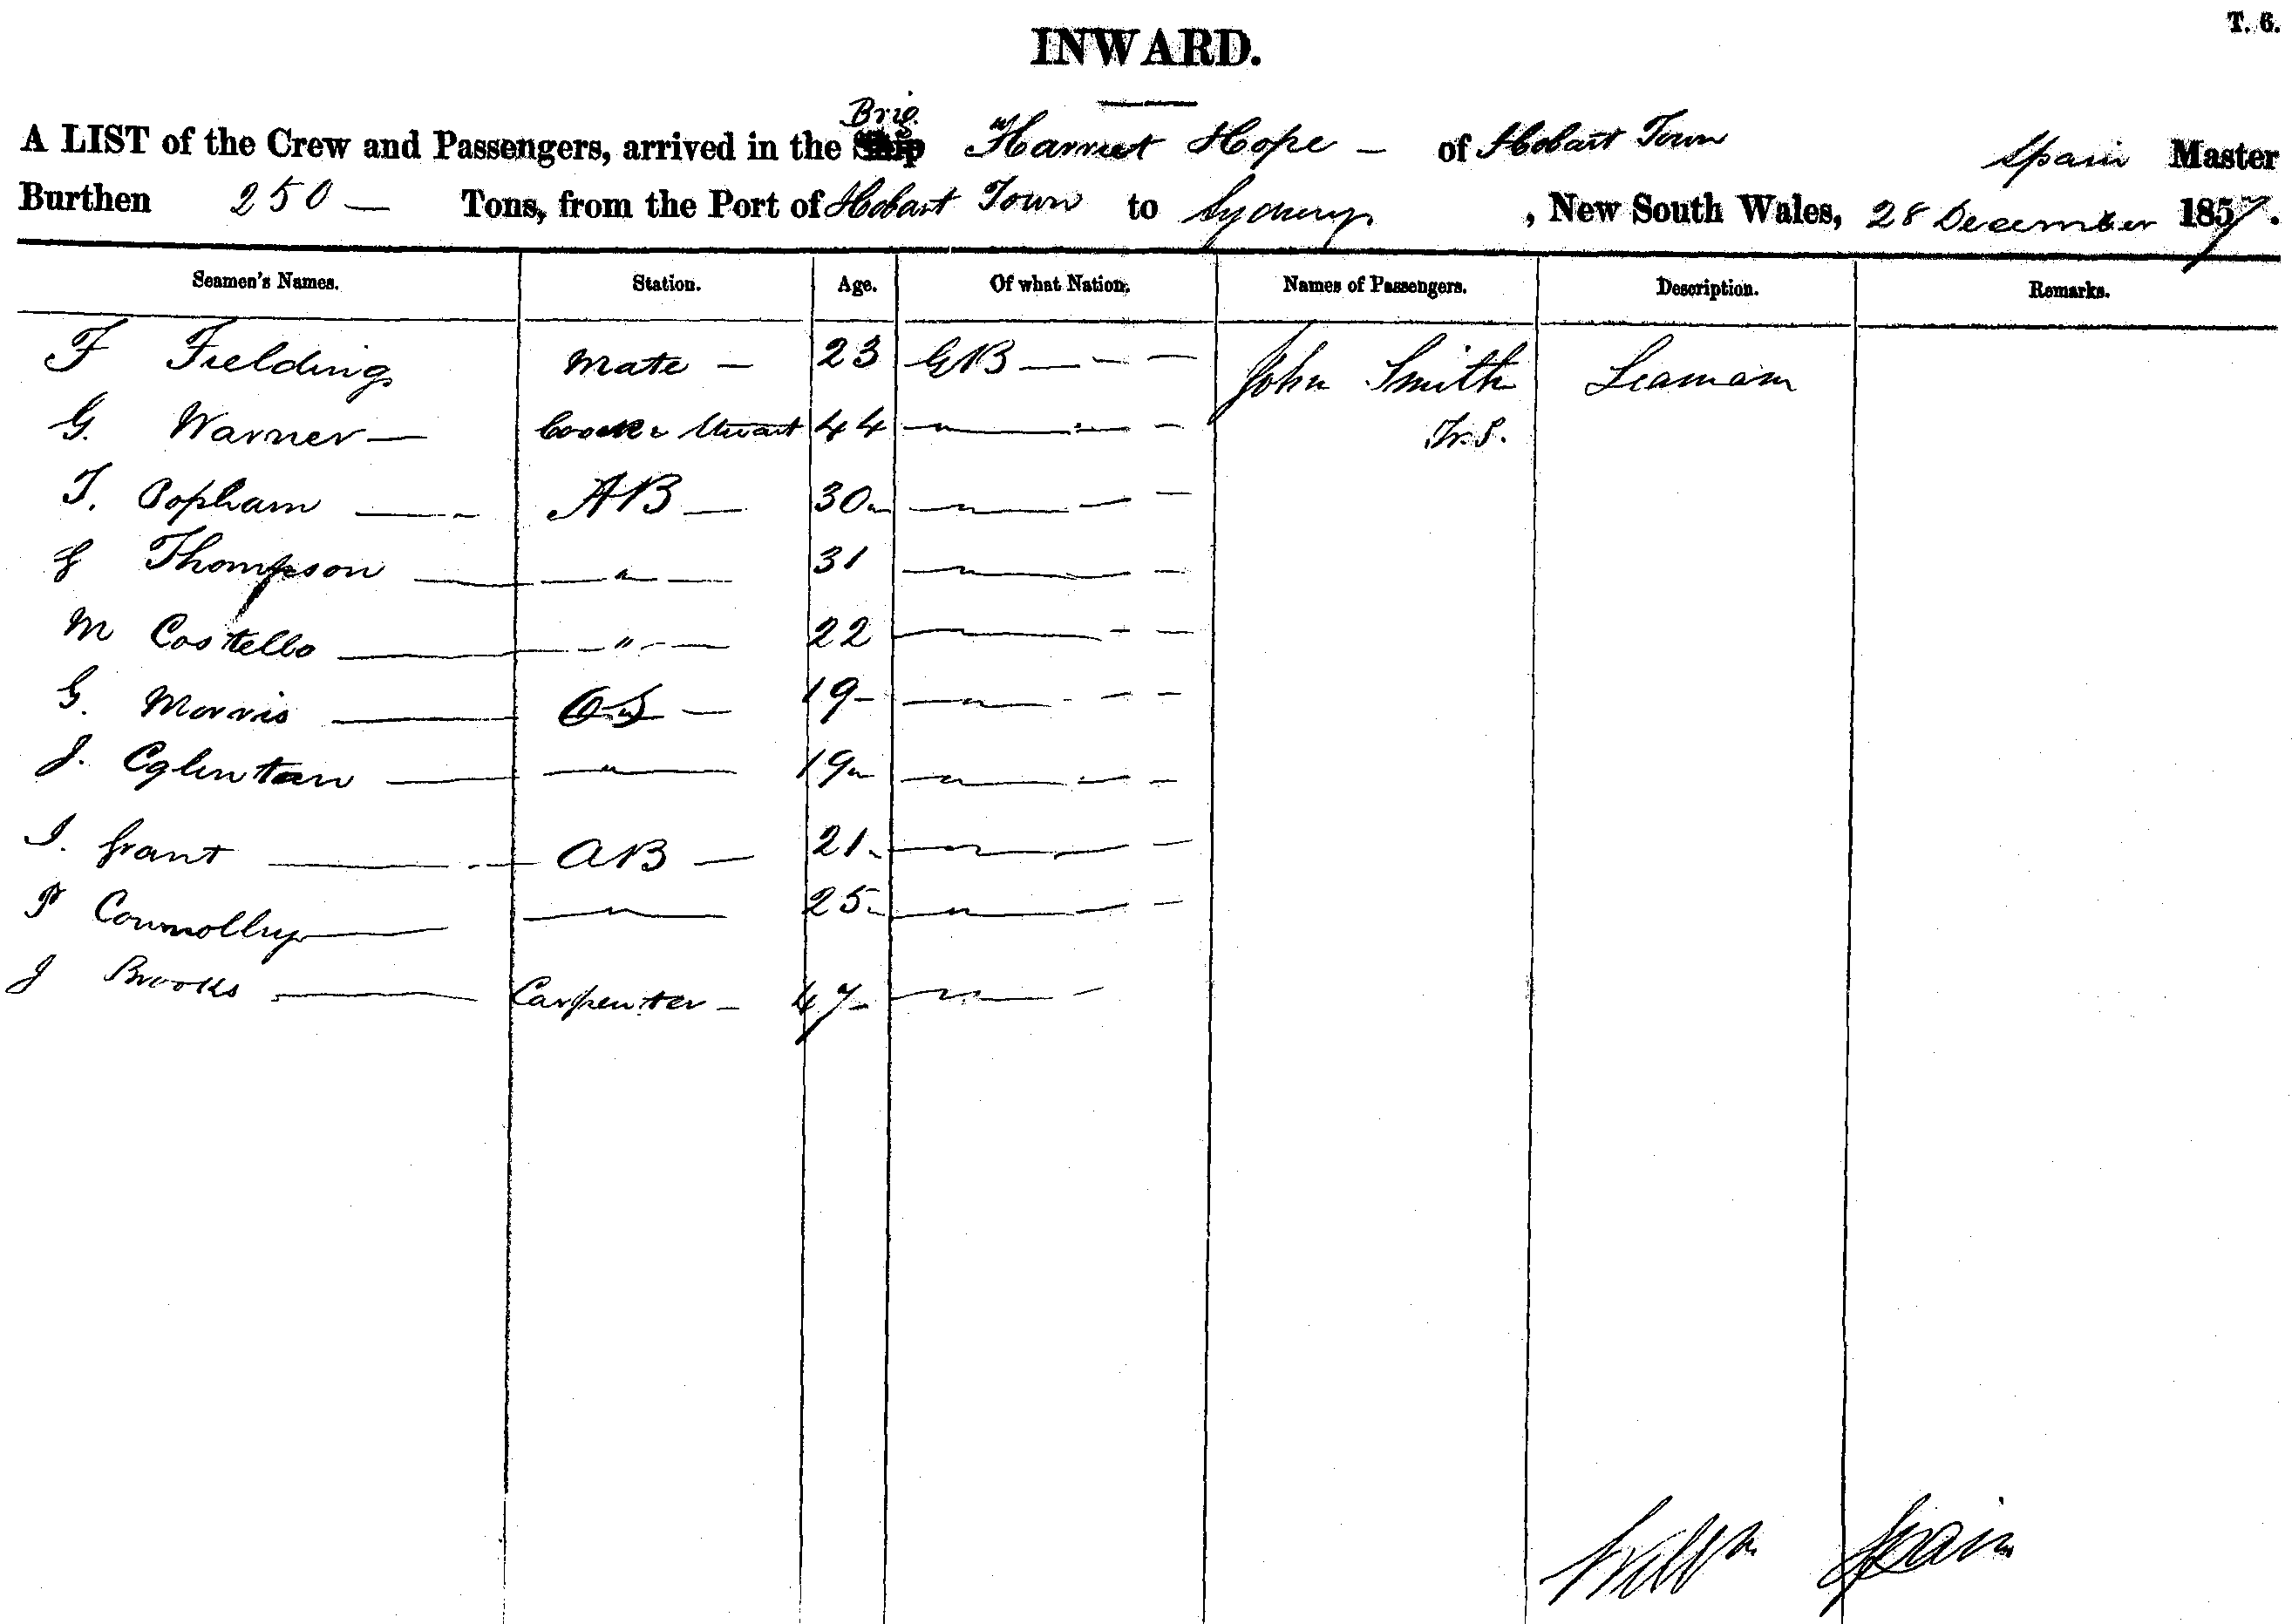 T. 6.
INWARD.
Brig.
A LIST of the Crew and Passengers, arrived in the Ship Harriet Hope – of Hobart Town Spain Master
Burthen 250 – Tons, from the Port of Hobart Town to Sydney , New South Wales, 28 December 1857.
Seamen's Names. Station. Age. Of what Nation. Names of Passengers. Description. Remarks.
F Fielding Mate – 23 GB — – – John Smith Seaman
G. Warner — Cook & 44 — " — –
T. Popham — AB — 30 — " — –
Thompson — " — 31 — " — –
M Costello — " — 22 — – –
G. Morris — OS — 19 – — " — –
J. Eglintan — " — 19 – — " — –
Grant — AB — 21 – — " — –
P Connolly — " — 25 – — " — –
J Brooks — Carpenter – 47 – — " — –
Willm Spain